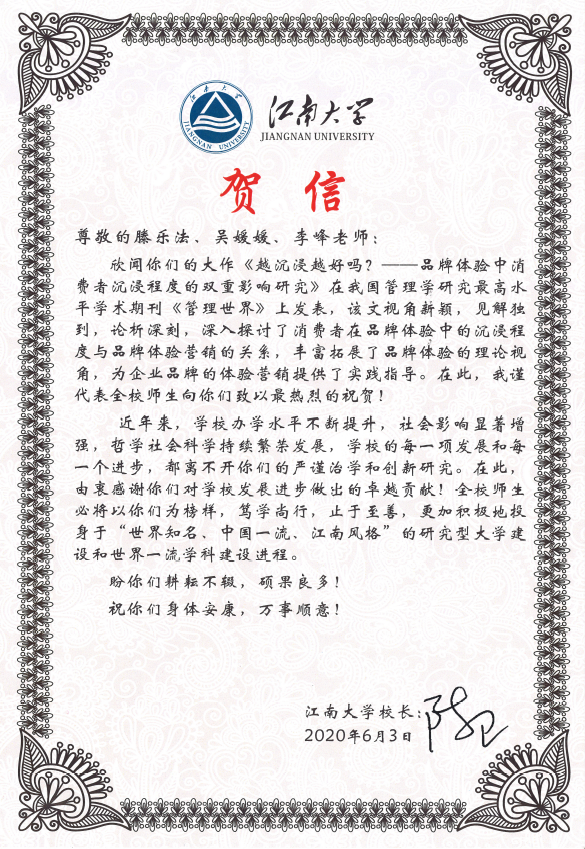 江南大学
JIANGNAN UNIVERSITY
江南大学
JIANGNAN UNIVERSITY
贺 信
尊敬的滕乐法、吴媛媛、李峰老师：
欣闻你们的大作《越沉浸越好吗？——品牌体验中消
费者沉浸程度的双重影响研究》在我国管理学研究最高水
平学术期刊《管理世界》上发表，该文视角新颖，见解独
到，论析深刻，深入探讨了消费者在品牌体验中的沉浸程
度与品牌体验营销的关系，丰富拓展了品牌体验的理论视
角，为企业品牌的体验营销提供了实践指导。在此，我谨
代表全校师生向你们致以最热烈的祝贺！
近年来，学校办学水平不断提升，社会影响显著增
强，哲学社会科学持续繁荣发展，学校的每一项发展和每
一个进步，都离不开你们的严谨治学和创新研究。在此，
由衷感谢你们对学校发展进步做出的卓越贡献！全校师生
必将以你们为榜样，笃学尚行，止于至善，更加积极地投
身于“世界知名、中国一流、江南风格”的研究型大学建
设和世界一流学科建设进程。
盼你们耕耘不辍，硕果良多！
祝你们身体安康，万事顺意！
江南大学校长：
2020年6月3日